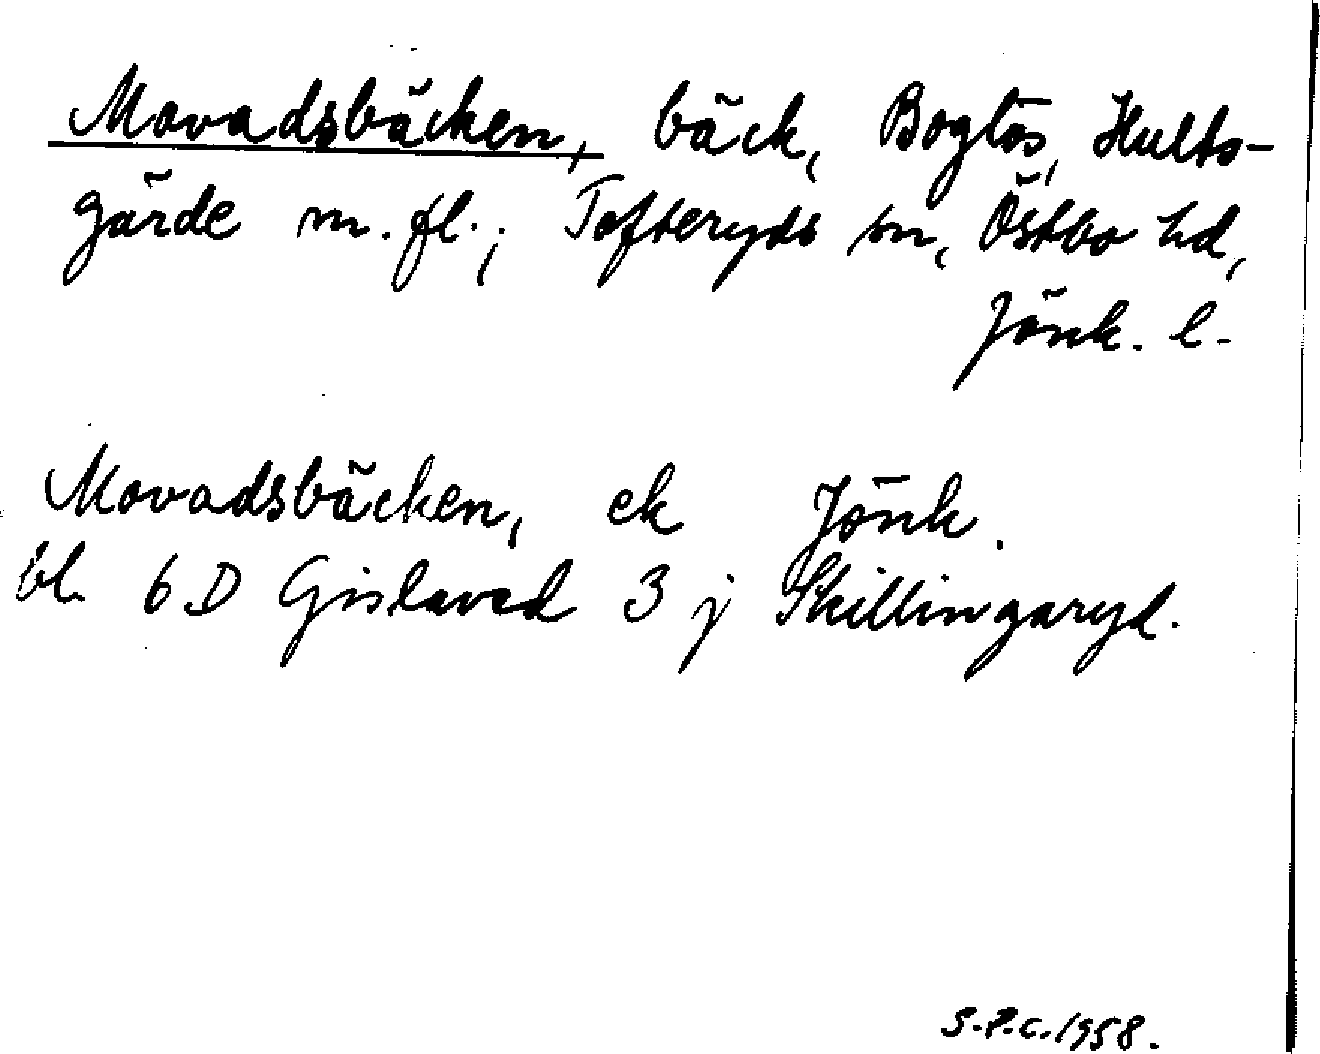 Movadsbäcken, bäck, Bogtås, Hults-
gärde m. fl.; Tofteryds sn, Östbo hd,
Jönk. l.
Movadsbäcken, ek Jönk.
bl. 6D Gislaved 3 j Skillingaryd.
S.P.C. 1958.